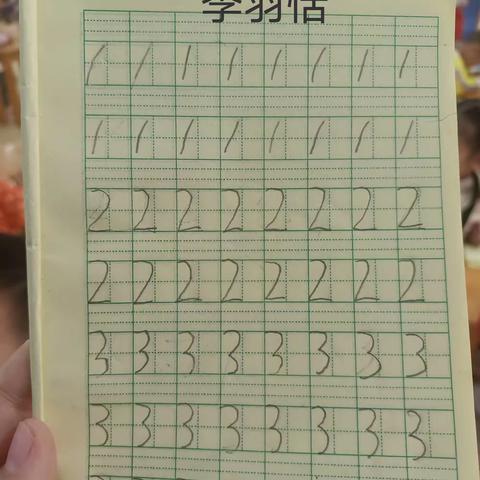 李羽恬
1 1 1 1 1 1 1 1
1 1 1 1 1 1 1 1
2 2 2 2 2 2 2 2
2 2 2 2 2 2 2 2
3 3 3 3 3 3 3 3
3 3 3 3 3 3 3 3